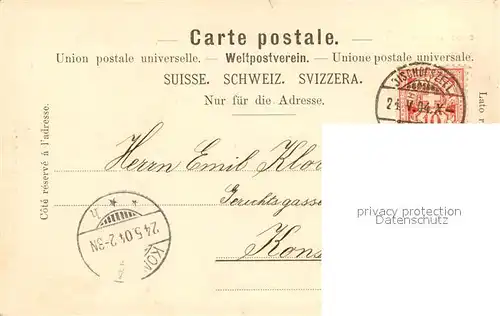 Carte postale.
Union postale universelle. — Weltpostverein. — Unione postale universale.
SUISSE. SCHWEIZ. SVIZZERA.
Nur für die Adresse.
Côté réservé à l'adresse.
Lato r
BISCHOFSZELL
24.V.04.X-
10
Herrn Emil Klor
Gerichtsgasse
Kons
24.5.04.2-3N
KON
privacy protection
Datenschutz